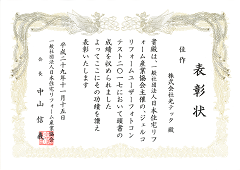 表彰状
佳作
株式会社光テック 殿
貴殿は、一般社団法人日本住宅リフ
ォーム産業協会主催の、ジェルコ
リフォームユーザーフォトコン
テスト二〇一七において頭書の
成績を収められました
よってここにその功績を讃え
表彰いたします
平成二十九年十一月十五日
一般社団法人日本住宅リフォーム産業協会
会長 中山信義